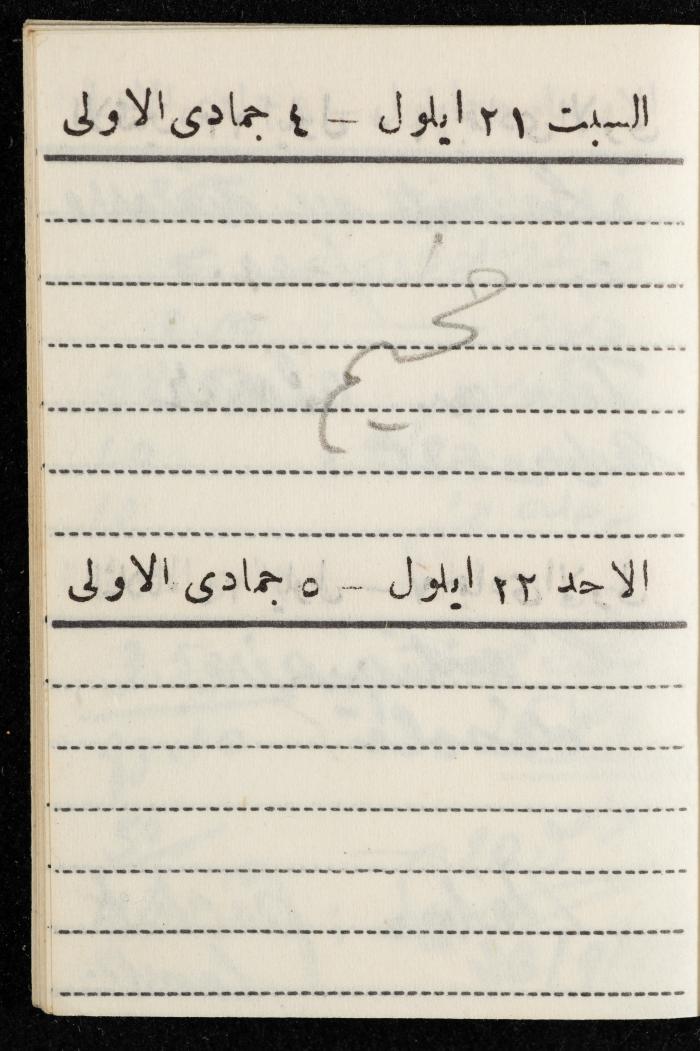 السبت ٢١ ايلول – ٤ جمادى الاولى
الاحد ٢٢ ايلول – ٥ جمادى الاولى